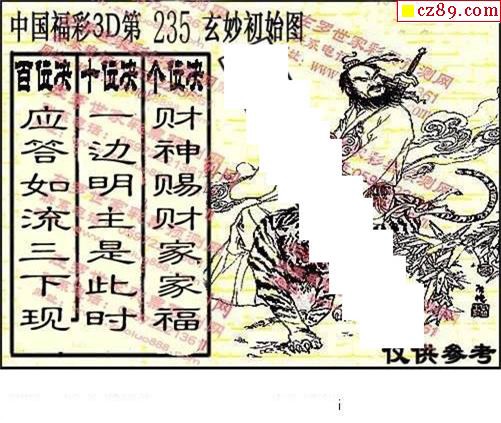 cz89.com
中国福彩3D第 235 玄妙初始图
百位决 十位决 个位决
应答如流三下现
一边明主是此时
财神赐财家家福
仅供参考
i